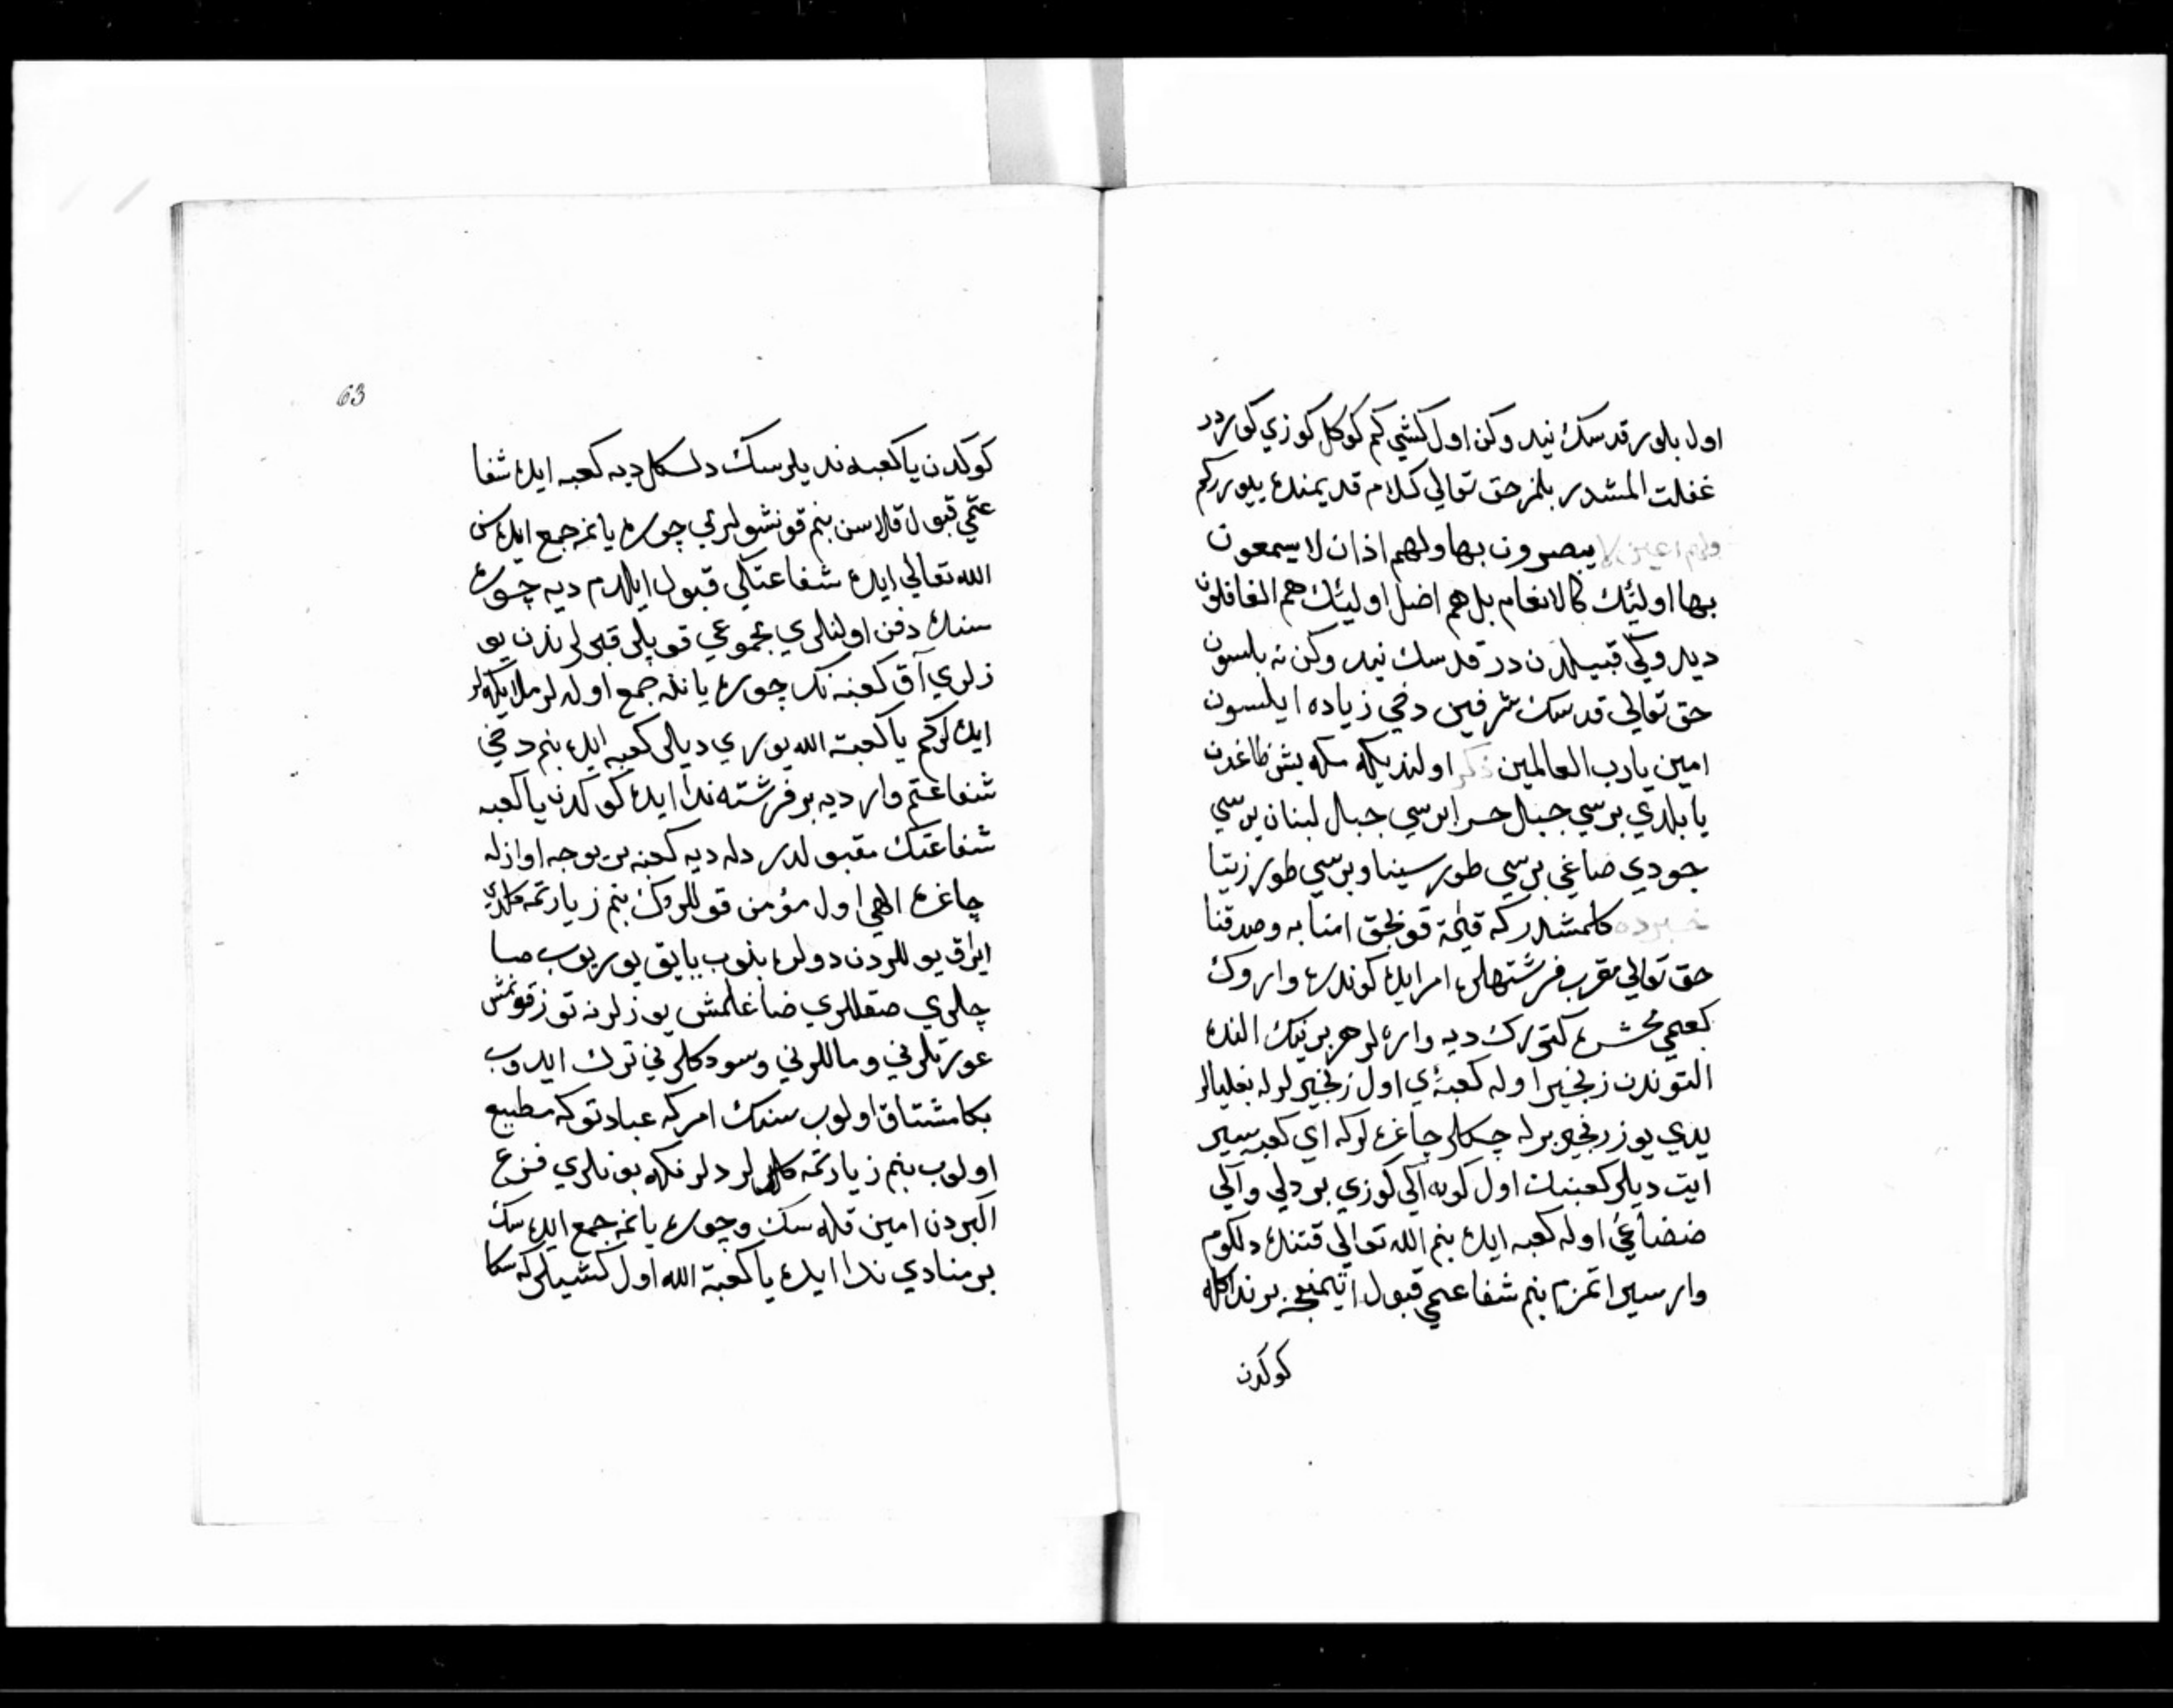 اول بلور قدسك نيدر وكن اول كشي كم كوكل كوزي كوردر
غفلت المشدر بلمز حق تعالي كلام قديمنده بيوررکم
ولهم اعين لا يبصرون بها ولهم اذان لا يسمعون
بها اولئك كالانعام بل هم اضل اولئك هم الغافلون
ديد وكي قبيلدن در قدسك نيدر وكن نه بلسون
حق تعالي قدسك شرفين دخي زياده ايلسون
امين يا رب العالمين ذكر اولنديكه مكه بش طاغدن
يابلدي برسي جبال حرا برسي جبال لبنان برسي
جودي ضاغي برسي طور سينا وبرسي طور زيتا
خبرده كلمشدر كه قيمة قونجق امنا به وصدقنا
حق تعالي مقرب فرشتهلره امر ايده كوندره واروك
كعبيي محشره كتورك ديه وارلر هر برنيك النده
التوندن زنجير اوله كعبه‌ي اول زنجيرلرله بغليالر
يدي يوز زنجير برله چكلر چاغرلر كه اي كعبه سير
ايت ديلر كعبنك اول كون ايكي كوزي بر دلي وايكي
ضضاغي اوله كعبه ايده بنم الله تعالي قتنده دلكوم
وار سير اتمزم بنم شفاعتمي قبول اتيمنجه بر ندا كله
كوكدن
63
كوكدن يا كعبه نه ديلرسك دلكل ديه كعبه ايده شفا
عتمي قبول قلاسن بنم قونشولرمي چوره يانمه جمع ايده سن
الله تعالي ايده شفاعتكي قبول ايلدم ديه چوره
سنده دفن اولنلري مجموعي قوپلر قبرلرندن يو
زلري آق كعبنه نك چوره يانه جمع اوله لر ملايكه لر
ايده لركم يا كعبة الله يوري ديالر كعبه ايده بنم دخي
شفاعتم وار ديه بر فرشته ندا ايده كوكدن يا كعبه
شفاعتك مقبولدر دله ديه كعبه بر يوجه اوازله
چاغره الهي اول مؤمن قوللروك بنم زيارتمه كلدي
ايراق يوللردن دولر بنوب يايق يوريوب صا
چلري صقللري ضاغلمش يوزلرنه توز قونمش
عورتلرني وماللرني وسودكلرني ترك ايدوب
بكا مشتاق اولوب سنك امركه عبادتوكه مطيع
اولوب بنم زيارتمه كلدلر دلرنكه بونلري فزع
اكبردن امين قله سك وچوره يانمه جمع ايده سك
بر منادي ندا ايده يا كعبة الله اول كشيلركه سكا